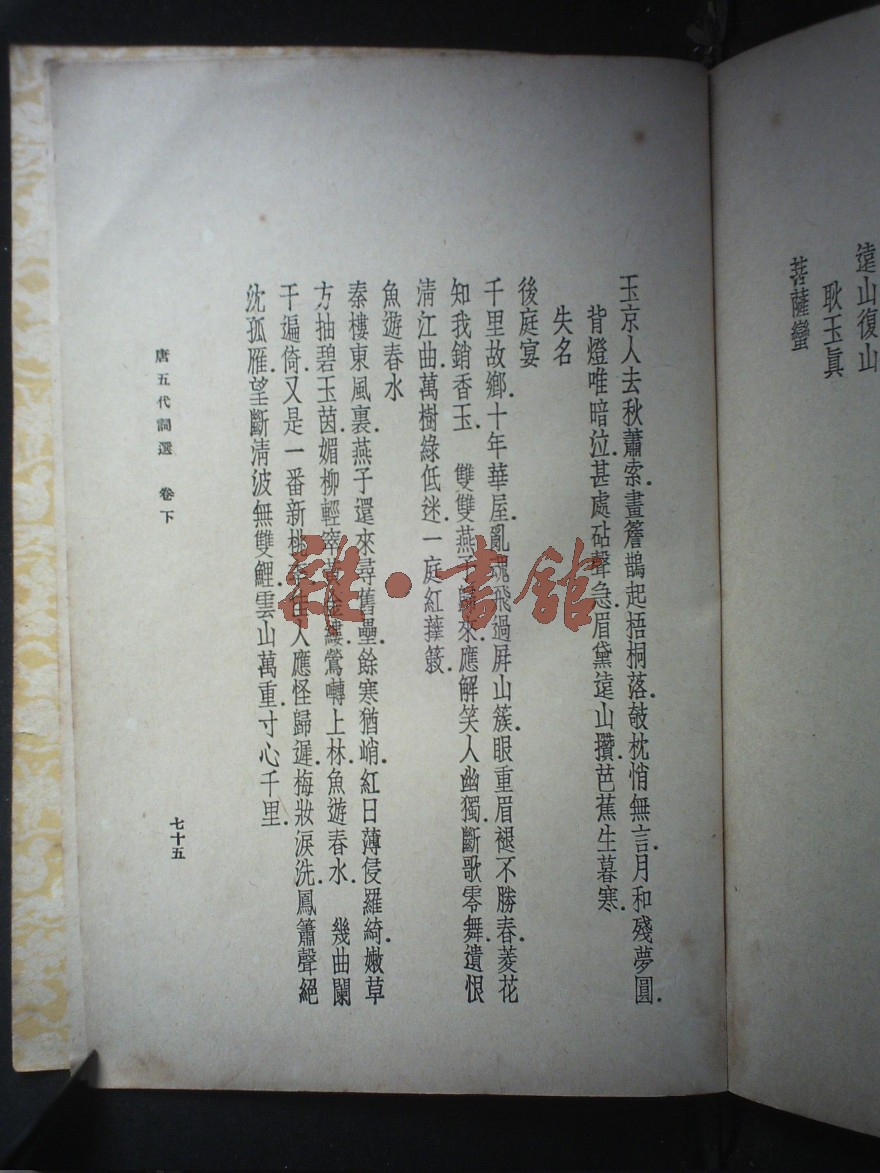 遠山復山
耿玉真
菩薩蠻
玉京人去秋蕭索.畫簷鵲起梧桐落.攲枕悄無言.月和殘夢圓.
背燈唯暗泣.甚處砧聲急.眉黛遠山攢.芭蕉生暮寒.
失名
後庭宴
千里故鄉.十年華屋.亂魂飛過屛山簇.眼重眉褪不勝春.菱花
知我銷香玉　雙雙燕子歸來.應解笑人幽獨.斷歌零舞.遺恨
淸江曲.萬樹綠低迷.一庭紅蔌.
魚遊春水
秦樓東風裏.燕子還來尋舊壘.餘寒猶峭.紅日薄侵羅綺.嫩草
方抽碧玉茵.媚柳輕窣黃金縷.鶯囀上林.魚遊春水.　幾曲闌
干遍倚.又是一番新桃佳人應怪歸遲.梅妝淚洗.鳳簫聲絕
沈孤雁.望斷淸波無雙鯉.雲山萬重.寸心千里.
唐五代詞選　卷下
七十五
雜·書館